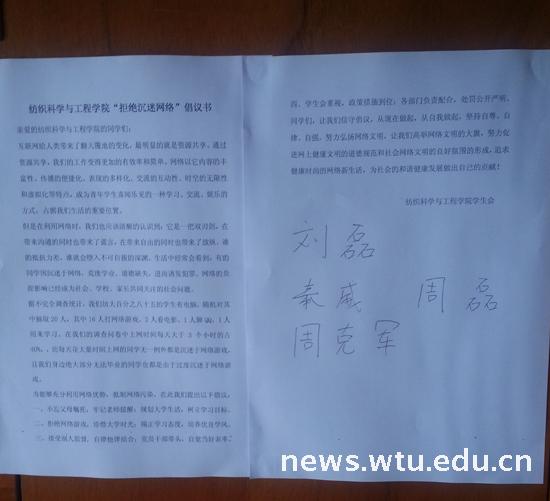 纺织科学与工程学院“拒绝沉迷网络”倡议书
亲爱的纺织科学与工程学院的同学们：
互联网给人类带来了翻天覆地的变化，最明显的就是资源共享，通过
资源共享，我们的工作变得更加的有效率和简单。网络以它内容的丰
富性、传播的便捷化、表现的多样化、交流的互动性、时空的无限性
和虚拟化等特点，成为青年学生喜闻乐见的一种学习、交流、娱乐的
方式，占据我们生活的重要位置。
但是在利用网络时，我们也应该清醒的认识到：它是一把双刃剑，在
带来沟通的同时也带来了谎言，在带来自由的同时也带来了放纵。谁
的抵抗力差，谁就会堕入不可自拔的深渊。生活中经常会看到，有的
同学因沉迷于网络，荒废学业、道德缺失，进而诱发犯罪。网络的负
面影响已经成为社会、学校、家长共同关注的社会问题。
据不完全调查统计，我们纺大百分之八十五的学生有电脑，随机对其
中抽取 20 人，其中 16 人打网络游戏，2 人看电影，1 人聊 QQ，1 人
用来学习。在我们的调查问卷中上网时间每天大于 3 个小时的占
40%，且每天花大量时间上网的同学无一例外都是沉迷于网络游戏，
且我们身边绝大部分无法毕业的同学也都是由于过度沉迷于网络游
戏。
为能够充分利用网络优势，抵制网络污染，在此我们提出以下倡议：
一、不忘父母嘱托，牢记老师提醒；规划大学生活，树立学习目标。
二、拒绝网络游戏，珍惜大学时光；端正学习态度，培养优良学风。
三、接受别人监督，自律他律结合；党员干部带头，自觉当好表率。
四、学生会重视，政策措施到位；各部门负责配合，处罚公开严明。
同学们，让我们信守倡议，从现在做起，从自我做起，坚持自尊、自
律、自强，努力弘扬网络文明，让我们高举网络文明的大旗，努力促
进网上健康文明的道德规范和社会网络文明的良好氛围的形成，追求
健康时尚的网络新生活，为社会的和谐健康发展做出自己的贡献！
纺织科学与工程学院学生会
刘磊
秦威 周磊
周克军
news.wtu.edu.cn